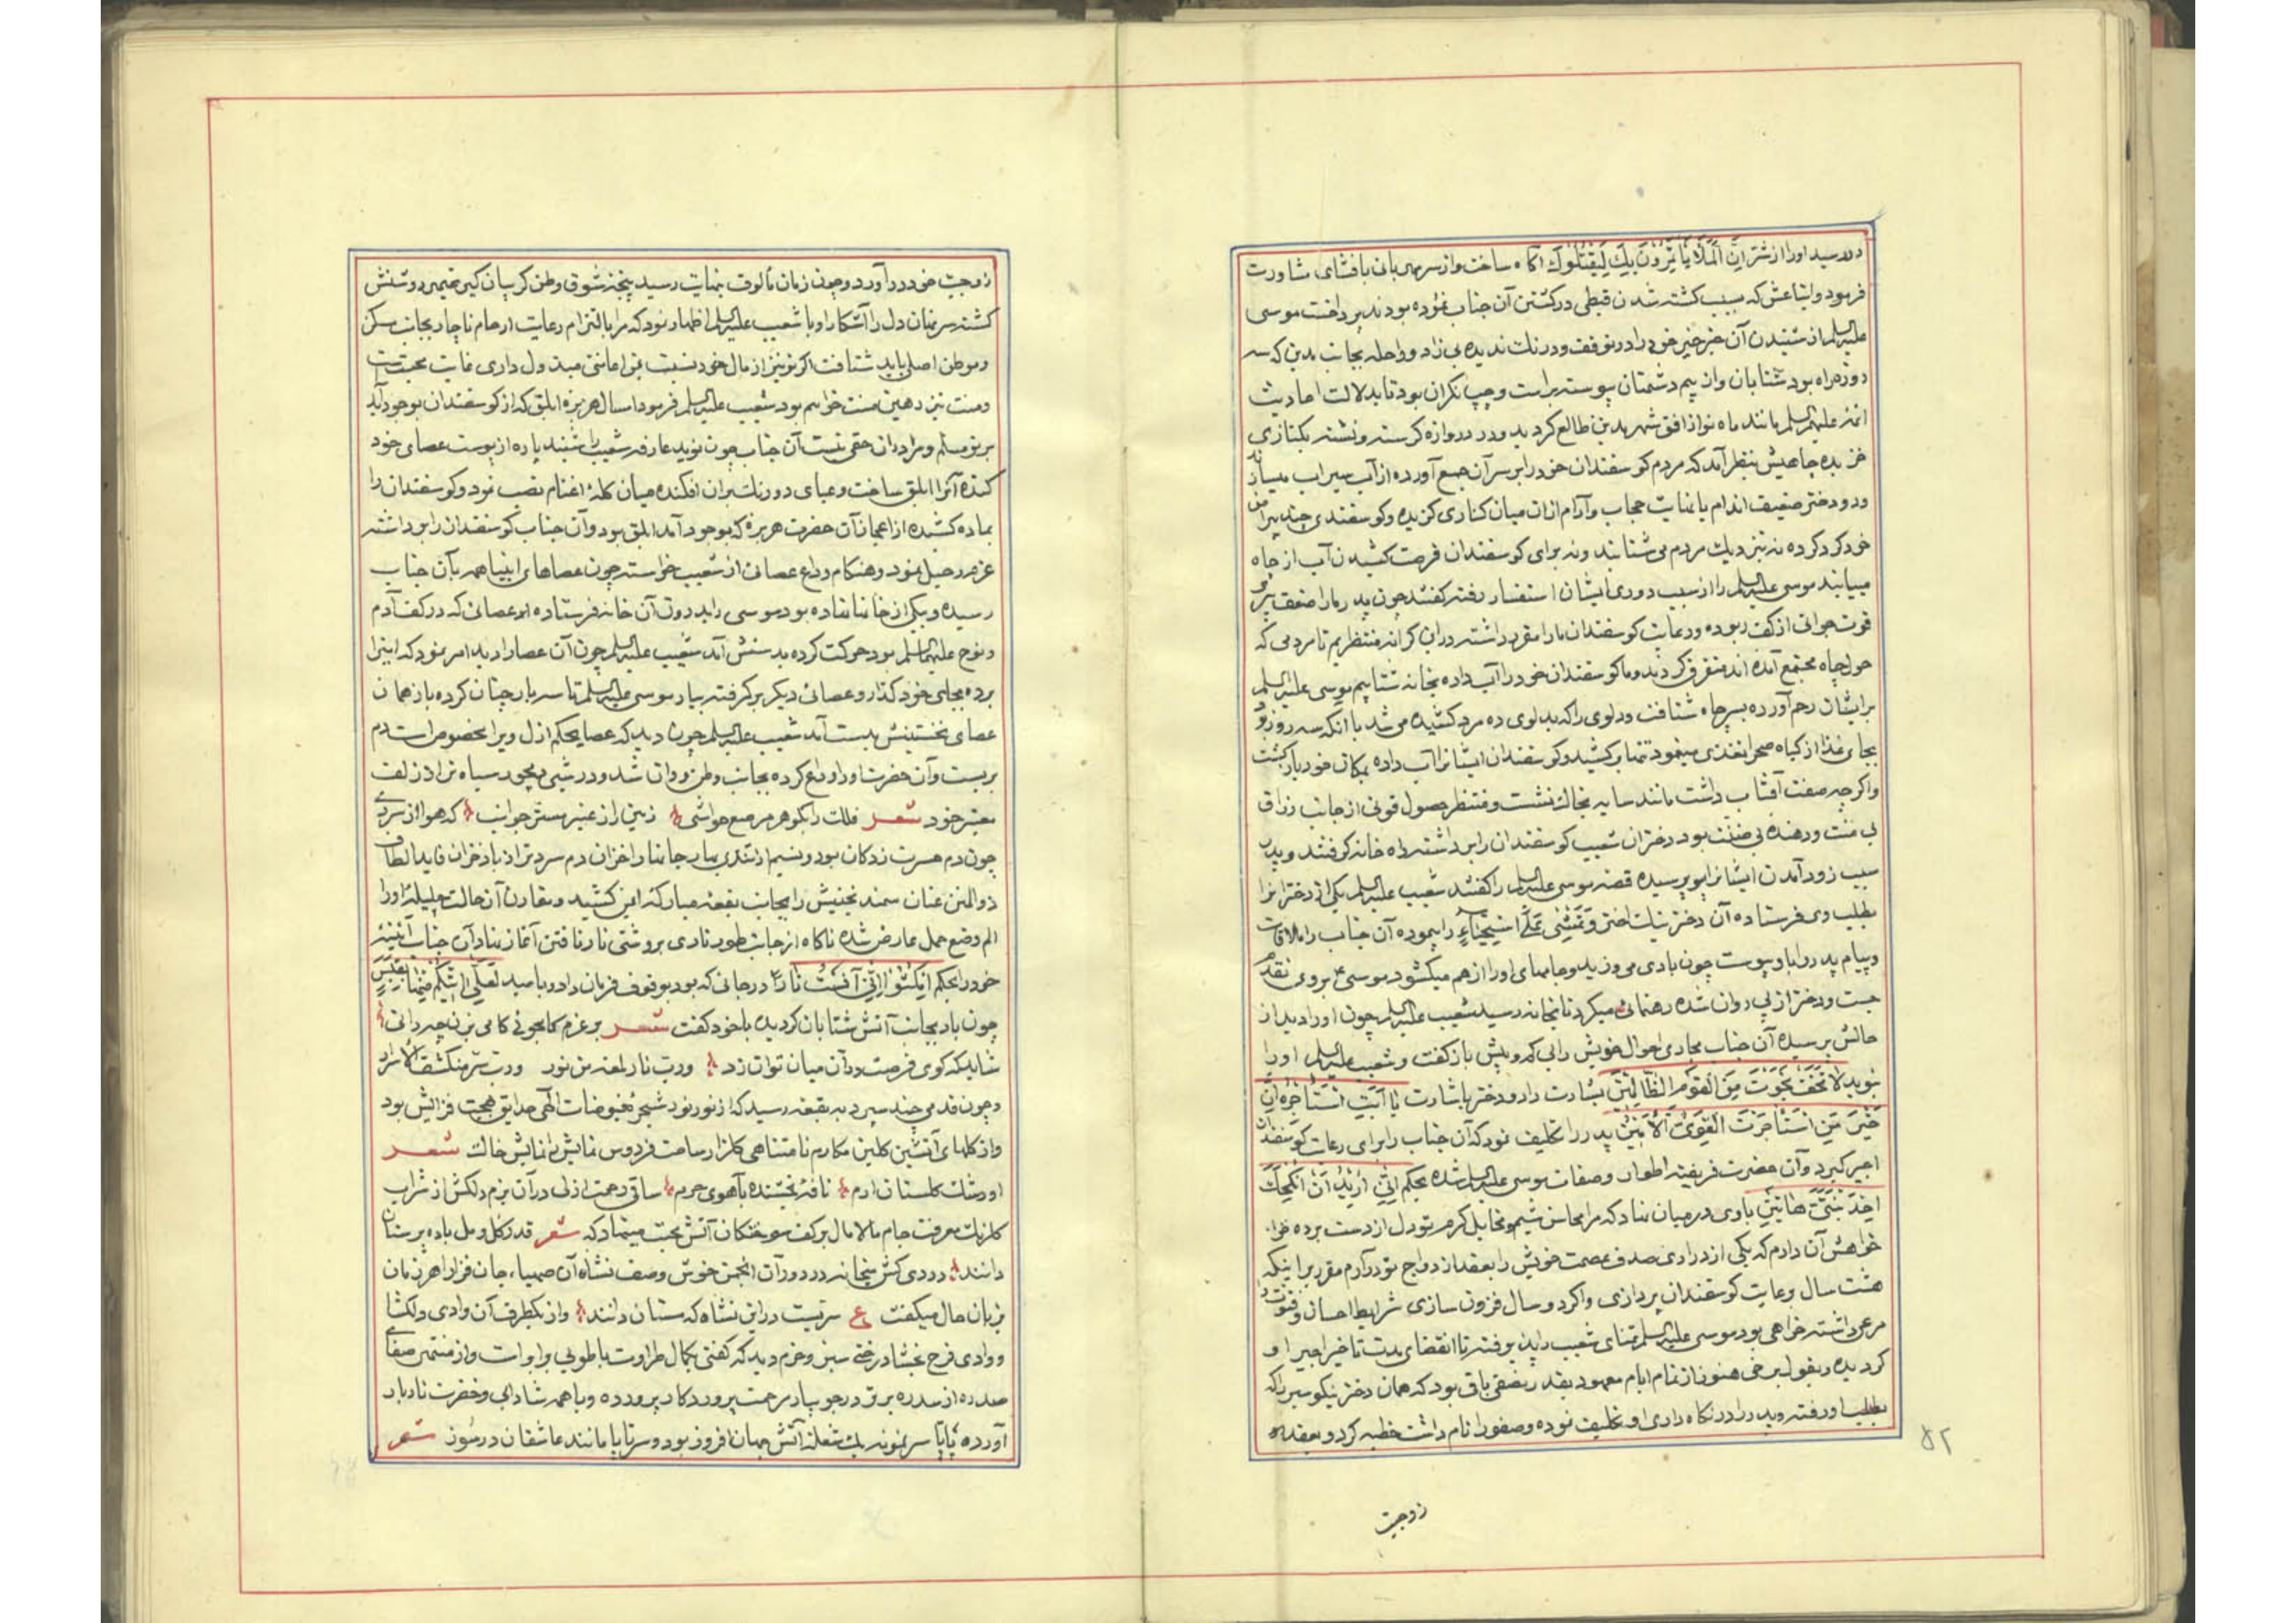 در رسید اورا از شر اِنَّ الْمَلَأَ یَأْتَمِرُونَ بِكَ لِیَقْتُلُوكَ آکاه ساخت واز سر مهربانی بافشای مشاورت
فرمود واتباعش که بسبب کشته شدن قبطی در کشتن آن جناب نموده بودند پرداخت موسی
علیه السلم از شنیدن آن خبر خیر خود را در توقف ودرنك ندیده بی زاد وراحله بجانب مدین که سه
روزه راه بود شتابان واز بیم دشمنان پیوسته براست وچپ نکران بود تا بدلالت احادیث
ائمه علیهم السلم مانند ماه نو از افق شهر مدین طالع کردید ودر دروازه کرسنه وتشنه بکناری
خزیده چاهیش بنظر آمد که مردم کوسفندان خود را بر سر آن جمع آورده از آب سیراب میسازند
ودو دختر ضعیف اندام با نهایت حجاب وآرام ازان میان کناری کزیده وکوسفندی چند پیرامن
خود کرد کرده نه نزدیك مردم می شتابند ونه برای کوسفندان فرصت کشیدن آب از چاه
مییابند موسی علیه السلم را از سبب دوری ایشان استفسار رفته کفتند چون پدر مارا ضعف پیری
قوت جوانی از کف ربوده ورعایت کوسفندان مارا مقرر داشته دراین کرانه منتظریم تا مردمی که
حول چاه مجتمع آمده اند متفرق کردند وما کوسفندان خود را آب داده بخانه شتابیم موسی علیه السلم
بر ایشان رحم آورده بسر چاه شتافت ودلوی را که بدلوی ده مرد کشیده می شد با انکه سه روز بود
بجای غذا از کیاه صحرا تغذی مینمود تنها بر کشید وکوسفندان ایشانرا آب داده بمکان خود باز کشت
واکرچه صفت آفتاب داشت مانند سایه بخاك نشست ومنتظر حصول قوتی از جانب رزاق
بی منت ودهنده بی ضنت بود دختران شعیب کوسفندان را برداشته راه خانه کرفتند وپدر
سبب زود آمدن ایشانرا پرسیده قصه موسی علیه السلم را کفتند شعیب علیه السلم یکی از دختران را
بطلب وی فرستاده آن دختر نیك اختر وَتَمْشِی عَلَی اسْتِحْیَاءٍ راه پیموده آن جناب را ملاقات
وپیام پدر را باو پیوست چون بادی می وزید وجامهای اورا از هم میکشود موسی ع بروی تقدم
جست ودختر از پی روان شده رهنمائی میکرد تا بخانه رسید شعیب علیه السلم چون اورا دید از
حالش پرسیده آن جناب مجاری احوال خویش را بی کم وبیش باز کفت وشعیب علیه السلم اورا
بنوید لَا تَخَفْ نَجَوْتَ مِنَ الْقَوْمِ الظَّالِمِینَ بشارت داد ودختر باشارت یَا أَبَتِ اسْتَأْجِرْهُ إِنَّ
خَیْرَ مَنِ اسْتَأْجَرْتَ الْقَوِیُّ الْأَمِینُ پدر را تکلیف نمود که آن جناب را برای رعایت کوسفندان
اجیر کیرد وآن حضرت فریفته اطوار وصفات موسی علیه السلم شده بحکم اِنِّی اُرِیدُ اَنْ اُنْکِحَكَ
اِحْدَی ابْنَتَیَّ هَاتَیْنِ باوی در میان نهاد که مرا محاسن شیم ومخایل کرم تو دل از دست برده
خواهش آن دارم که یکی از دراری صدف عصمت خویش را بعقد ازدواج تو در آرم مقرر بر اینکه
هشت سال برعایت کوسفندان پردازی واکر دو سال فزون سازی شرایط احسان وفتوت را
مرعی داشته خواهی بود موسی علیه السلم تمنای شعیب را پذیرفته تا انقضای مدت تاخیر اجیر او
کردیده وبقول برخی هنوز از تمام ایام معهود بقدر نصفی باقی بود که همان دختر نیکو سیر را که
بطلب او رفته وپدر را در نکاه داری او تکلیف نموده وصفورا نام داشت خطبه کرد وبعقد
زوجیت
۸۲
زوجیت خود در آورد وچون زمان مألوف بنهایت رسید پنجه شوق وطن کریبان کیر ضمیر روشنش
کشته سر نهان دل را آشکارا وبا شعیب علیه السلم اظهار نمود که مرا بالتزام رعایت ارحام ناچار بجانب مسکن
وموطن اصلی باید شتافت اکر تو نیز از مال خود نسبت بمن اعانتی مبذول داری غایت محبتست
ومنت نیز رهین منت خواهم بود شعیب علیه السلم فرمود امسال هر بره ابلق که از کوسفندان بوجود آید
بر تو مسلم ومرا در ان حقی نیست آن جناب چون نوید عارفه شعیب را شنید پاره از پوست عصای خود
کنده آنرا ابلق ساخت وعبای دو رنك بران افکنده میان کله اغنام نصب نمود وکوسفندان را
بماده کشیده از اعجاز آن حضرت هر بره که بوجود آمد ابلق بود وآن جناب کوسفندان را برداشته
عزم رحیل نمود وهنکام وداع عصائی از شعیب خواسته چون عصاهای انبیا همه بآن جناب
رسیده ودر یکی از خانها نهاده بود موسی را بدرون آن خانه فرستاده عصائی که در کف آدم
ونوح علیهما السلم بود حرکت کرده بدستش آمد شعیب علیه السلم چون آن عصا را دید امر نمود که اینرا
برده بجای خود کذار وعصائی دیکر بر کرفته بیار موسی علیه السلم تا سه بار چنان کرده باز همان
عصای نخستینش بدست آمد شعیب علیه السلم چون دید که عصا بحکم ازل ویرا مخصوص است دم
بربست وآن حضرت اورا وداع کرده بجانب وطن روان شد ودر شبی دیجور سیاه تر از زلف
معنبر خود شعر فلك را بکوهر مرصع حواشی زمین را ز عنبر مستر جوانب که هوا از سردی
چون دم حسرت زدکان بود ونسیم از تندی بهار جانها را خزان دم سردتر از باد خزان قاید الطاف
ذوالمنن عنان سمند عزیمتش را بجانب بقعه مبارکه ایمن کشید ومقارن آن حالت حلیله اورا
الم وضع حمل عارض شده ناکاه از جانب طور ناری بروشنی نار تافتن آغاز نهاد آن جناب اهل بیت
خود را بحکم امْکُثُوا إِنِّی آنَسْتُ نَارًا در جائی که بود بوقوف فرمان داد وبامید لَعَلِّی آتِیکُمْ مِنْهَا بِقَبَسٍ
چون باد بجانب آتش شتابان کردیده با خود کفت شعر بر عزم کامجوئی کامی بزن چه دانی
شاید که کوی فرصت در آن میان توان زد وربّ نار لمعه من نور وربّ سرّ منکشف الاسرار
وچون قدمی چند سپرد به بقعه رسید که از نور نور شجره فیوضات الهی حدایق بهجت فزایش بود
واز کلهای آتشین کلبن مکارم نامتناهی کلزار ساحت فردوس نمایش نمایش خاك شعر
او رشك کلستان ارم نافه بخشنده بآهوی حرم ساقی رحمت ازلی در آن بزم دلکش از شراب
کلرنك معرفت جام مالامال بر کف سوختکان آتش محبت مینهاد که شعر قدر کل ومل باده پرستان
دانند دردی کش میخانه در دور آن انجمن خوش وصف نشاه آن صهباء جان فزا را هر زمان
بزبان حال میکفت ع سریست دراین نشاه که مستان دانند واز یکطرف آن وادی دلکشا
ووادی فرح بخشا درختی سبز وخرم دید که کفتی بکمال طراوت با طوبی برابر است واز منتهی صفای
صد ره از سدره برتر در جویبار مرحمت پروردکار پرورده وبا همه شادابی وخضرت نار بار
آورده پا تا سر نمونه یك شعله آتش جهان افروز بود وسر تا پا مانند عاشقان در سوز شعر